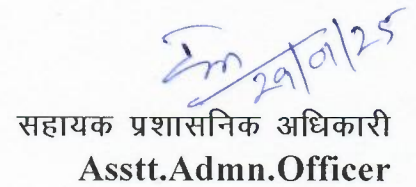 29/01/25
सहायक प्रशासनिक अधिकारी
Asstt.Admn.Officer